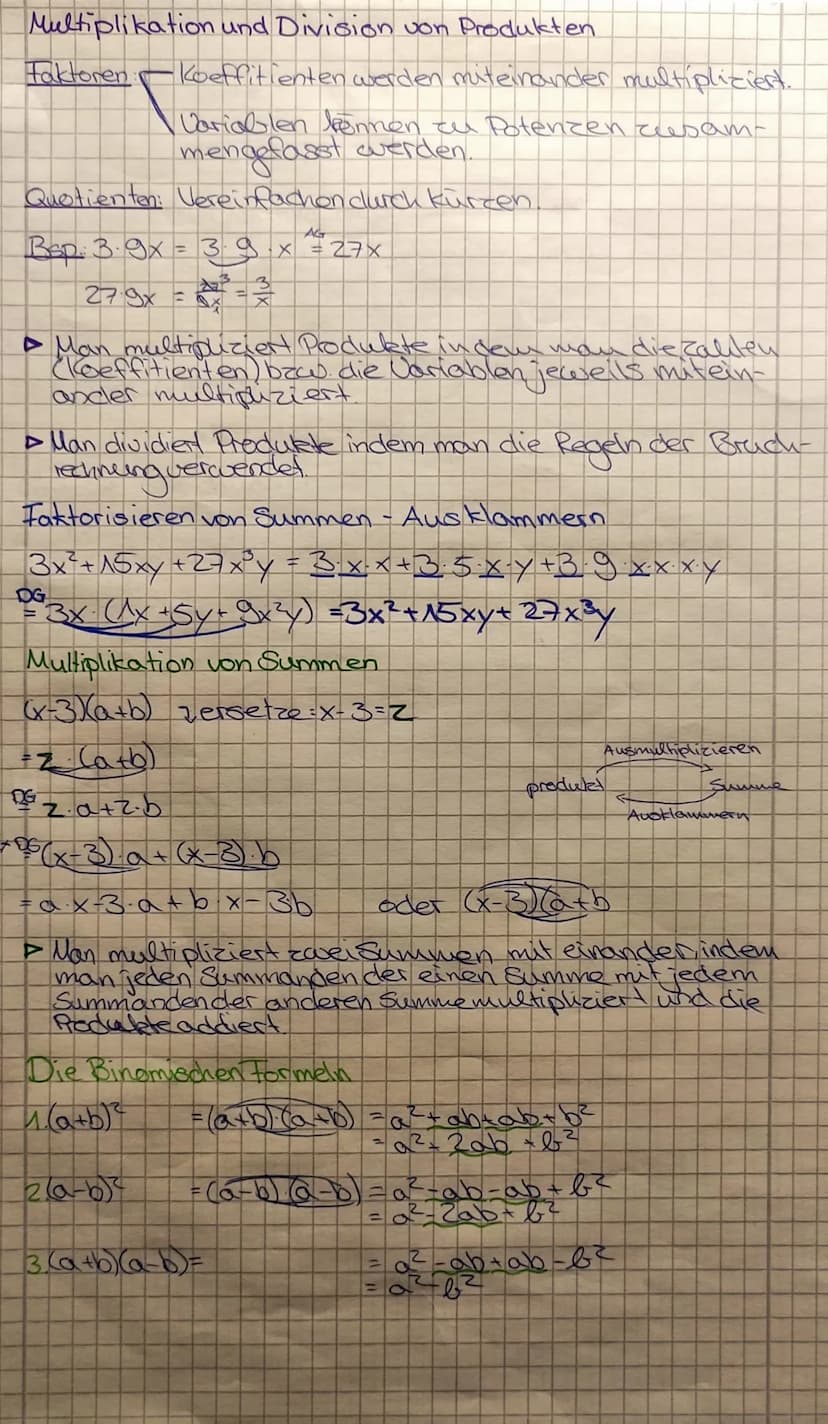 Multiplikation und Division von Produkten
Faktoren: Koeffitienten werden miteinander multipliziert.
Variablen können zu Potenzen zusam-
mengefasst werden.
Quotienten: Vereinfachen durch kürzen.
Bsp: 3·9x = 3·9·x =^AG 27x
27:9x = 27³/9x₁ = 3/x
▷ Man multipliziert Produkte indem man die Zahlen
(Koeffitienten) bzw. die Variablen jeweils mitein-
ander multipliziert.
▷ Man dividiert Produkte indem man die Regeln der Bruch-
rechnung verwendet.
Faktorisieren von Summen - Ausklammern
3x²+15xy+27x³y = 3·x·x+3·5·x·y+3·9·x·x·x·y
DG = 3x·(1x+5y+9x²y) = 3x²+15xy+27x³y
Multiplikation von Summen
(x-3)(a+b) zersetze: x-3=z
=z·(a+b)
DG = z·a+z·b
DG = (x-3)·a+(x-3)·b
=a·x-3·a+b·x-3b oder (x-3)(a+b
Ausmultiplizieren
produkt Summe
Ausklammern
▷ Man multipliziert zwei Summen mit einander, indem
man jeden Summanden der einen Summe mit jedem
Summanden der anderen Summe multipliziert und die
Produkte addiert.
Die Binomischen Formeln
1.(a+b)² =(a+b)·(a+b) =a²+ab+ab+b²
=a²+2ab+b²
2(a-b)² =(a-b)(a-b) =a²-ab-ab+b²
=a²-2ab+b²
3.(a+b)(a-b)= =a²-ab+ab-b²
=a²-b²